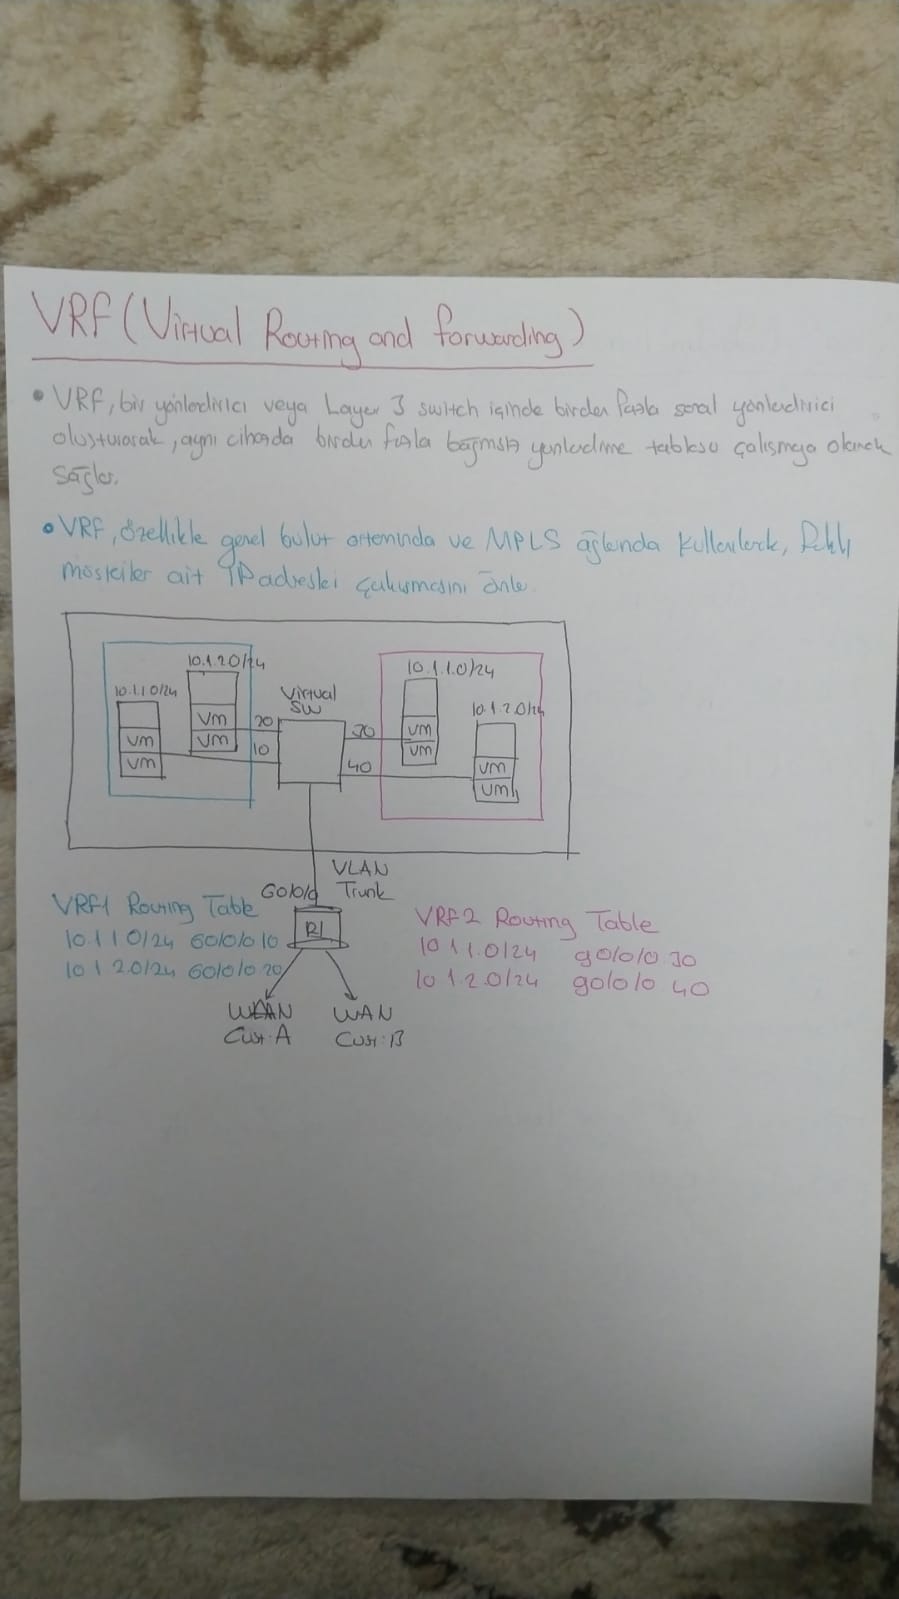 VRF (Virtual Routing and forwarding)
• VRF, bir yönlendirici veya Layer 3 switch içinde birden fazla sanal yönlendirici
oluşturarak, aynı cihazda birden fazla bağımsız yönlendirme tablosu çalışmaya olanak
sağlar.
• VRF, özellikle genel bulut ortamında ve MPLS ağlarında kullanılarak, farklı
müşteriler ait IP adresleri çakışmasını önler.
10.1.2.0/24
10.1.1.0/24
10.1.1.0/24
10.1.2.0/24
Virtual
SW
VM
VM
VM
VM
20
10
30
40
VM
VM
VM
VM
VLAN
Trunk
G0/0/0
R1
VRF1 Routing Table
10.1.1.0/24 G0/0/0.10
10.1.2.0/24 G0/0/0.20
VRF2 Routing Table
10.1.1.0/24 g0/0/0.30
10.1.2.0/24 g0/0/0 40
WAN
Cust:A
WAN
Cust:B